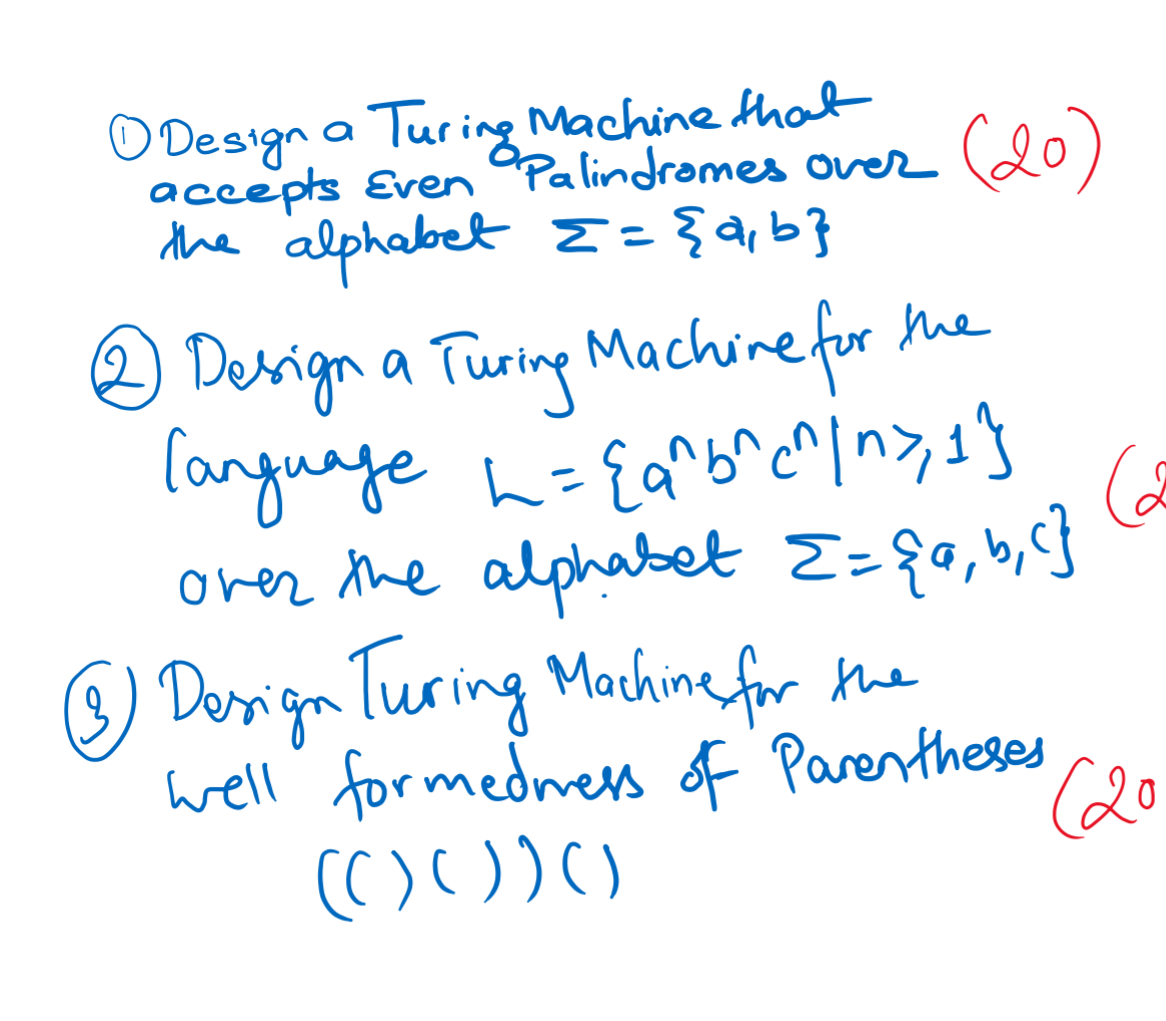 ① Design a Turing Machine that (20)
accepts Even Palindromes over
the alphabet Σ = {a, b}
② Design a Turing Machine for the
language L = {aⁿbⁿcⁿ | n ≥, 1} (2
over the alphabet Σ = {a, b, c}
③ Design Turing Machine for the
well formedness of Parentheses (20
(()())()